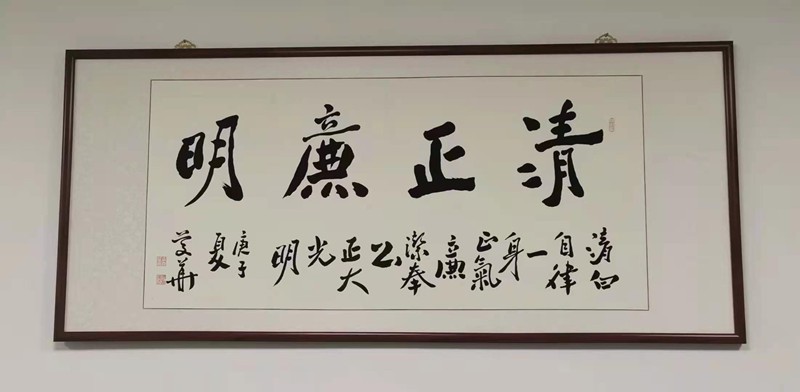 清正廉明
清白
自律
一
身
正氣
廉
潔奉
公
正大
光
明
庚子
夏